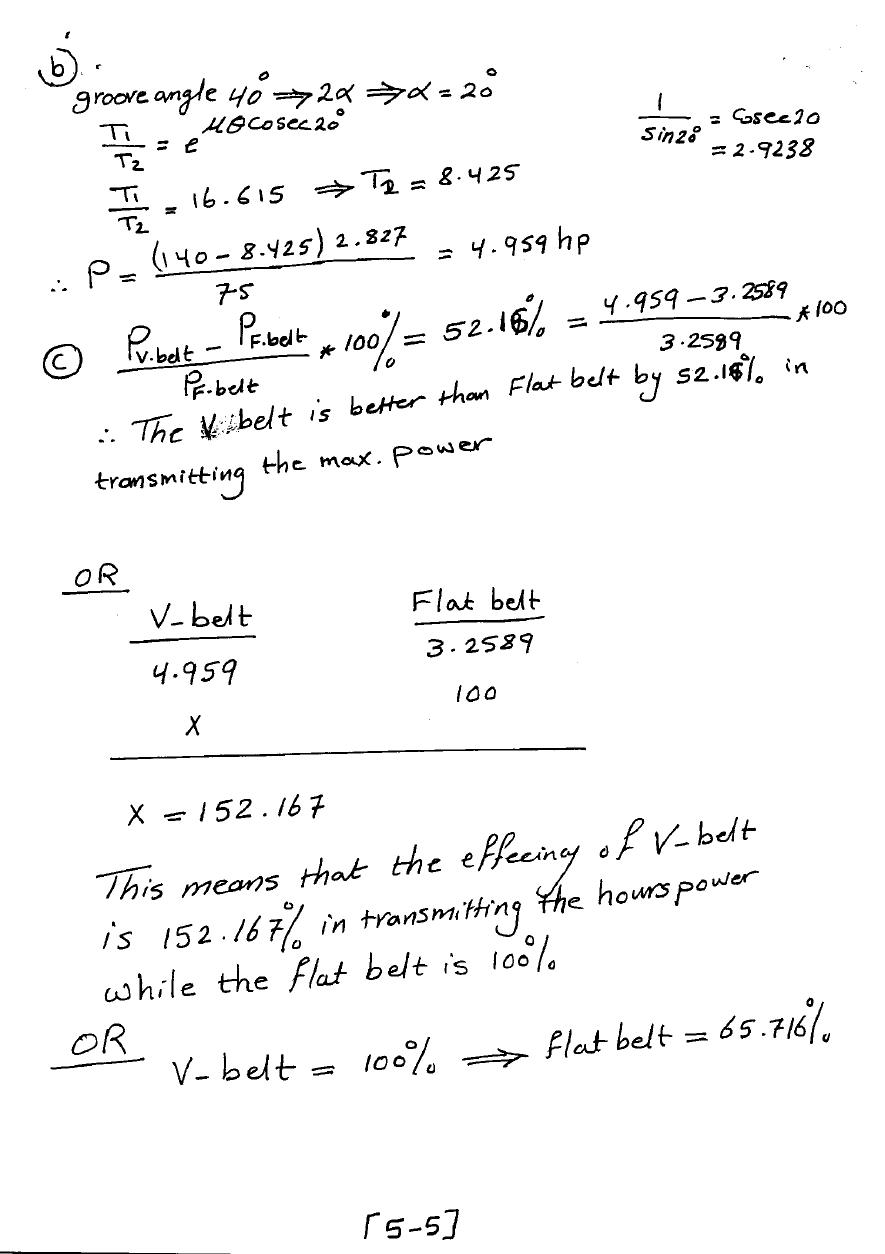 (b)
groove angle 40° ⇒ 2α ⇒ α = 20°
T1/T2 = e^μθcosec20°
1/Sin20° = Cosec20
= 2.9238
T1/T2 = 16.615 ⇒ T2 = 8.425
∴ P = (140 - 8.425) 2.827 / 75 = 4.959 hp
(c) (PV.belt - PF.belt) / PF.belt * 100% = 52.16% = (4.959 - 3.2589) / 3.2589 * 100
∴ The V belt is better than Flat belt by 52.16% in
transmitting the max. power
OR
V-belt Flat belt
4.959 3.2589
X 100
X = 152.167
This means that the effeciny of V-belt
is 152.167% in transmitting the hours power
while the flat belt is 100%
OR V-belt = 100% ⇒ flat belt = 65.716%
[5-5]